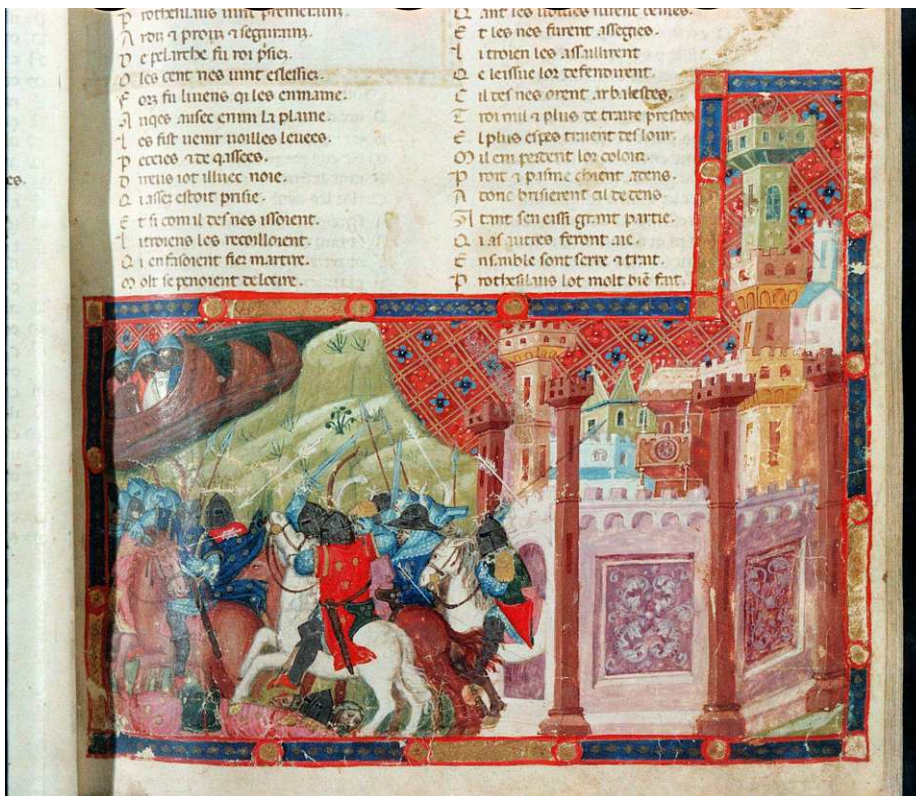 P rothesilaus uint premerains.
A rois ⁊ proiz ⁊ segurains.
D e pelarche fu roi p̃siez.
O les cent nes uint esleissiez.
F orz fu li uens qi les enmaine.
A nqes ausee enmi la plaine.
L es fist uenir uoilles leuees.
P eceies ⁊ de qassees.
D iot illuec noie.
Q i assez estoit prisie.
E t si com il des nes issoient.
L i troiens les recoilloient.
Q i en fasoient fier martire.
M olt se penoient de
Q ant les furent
E t les nes furent assegies.
L i troien les assaillirent
Q e leissue lor defendirent.
C il des nes orent arbalestes.
T roi mil ⁊ plus de traire prestes
E l plus espes traient des lour.
M il em perdent lor colour.
P roit ⁊ pasme chient adens.
A donc briserent cil dedens.
tant sen eissi grant partie.
Q i as autres feront aie.
E nsamble sont serre ⁊ traît.
P rothesilaus lot molt biẽ fait.
es.